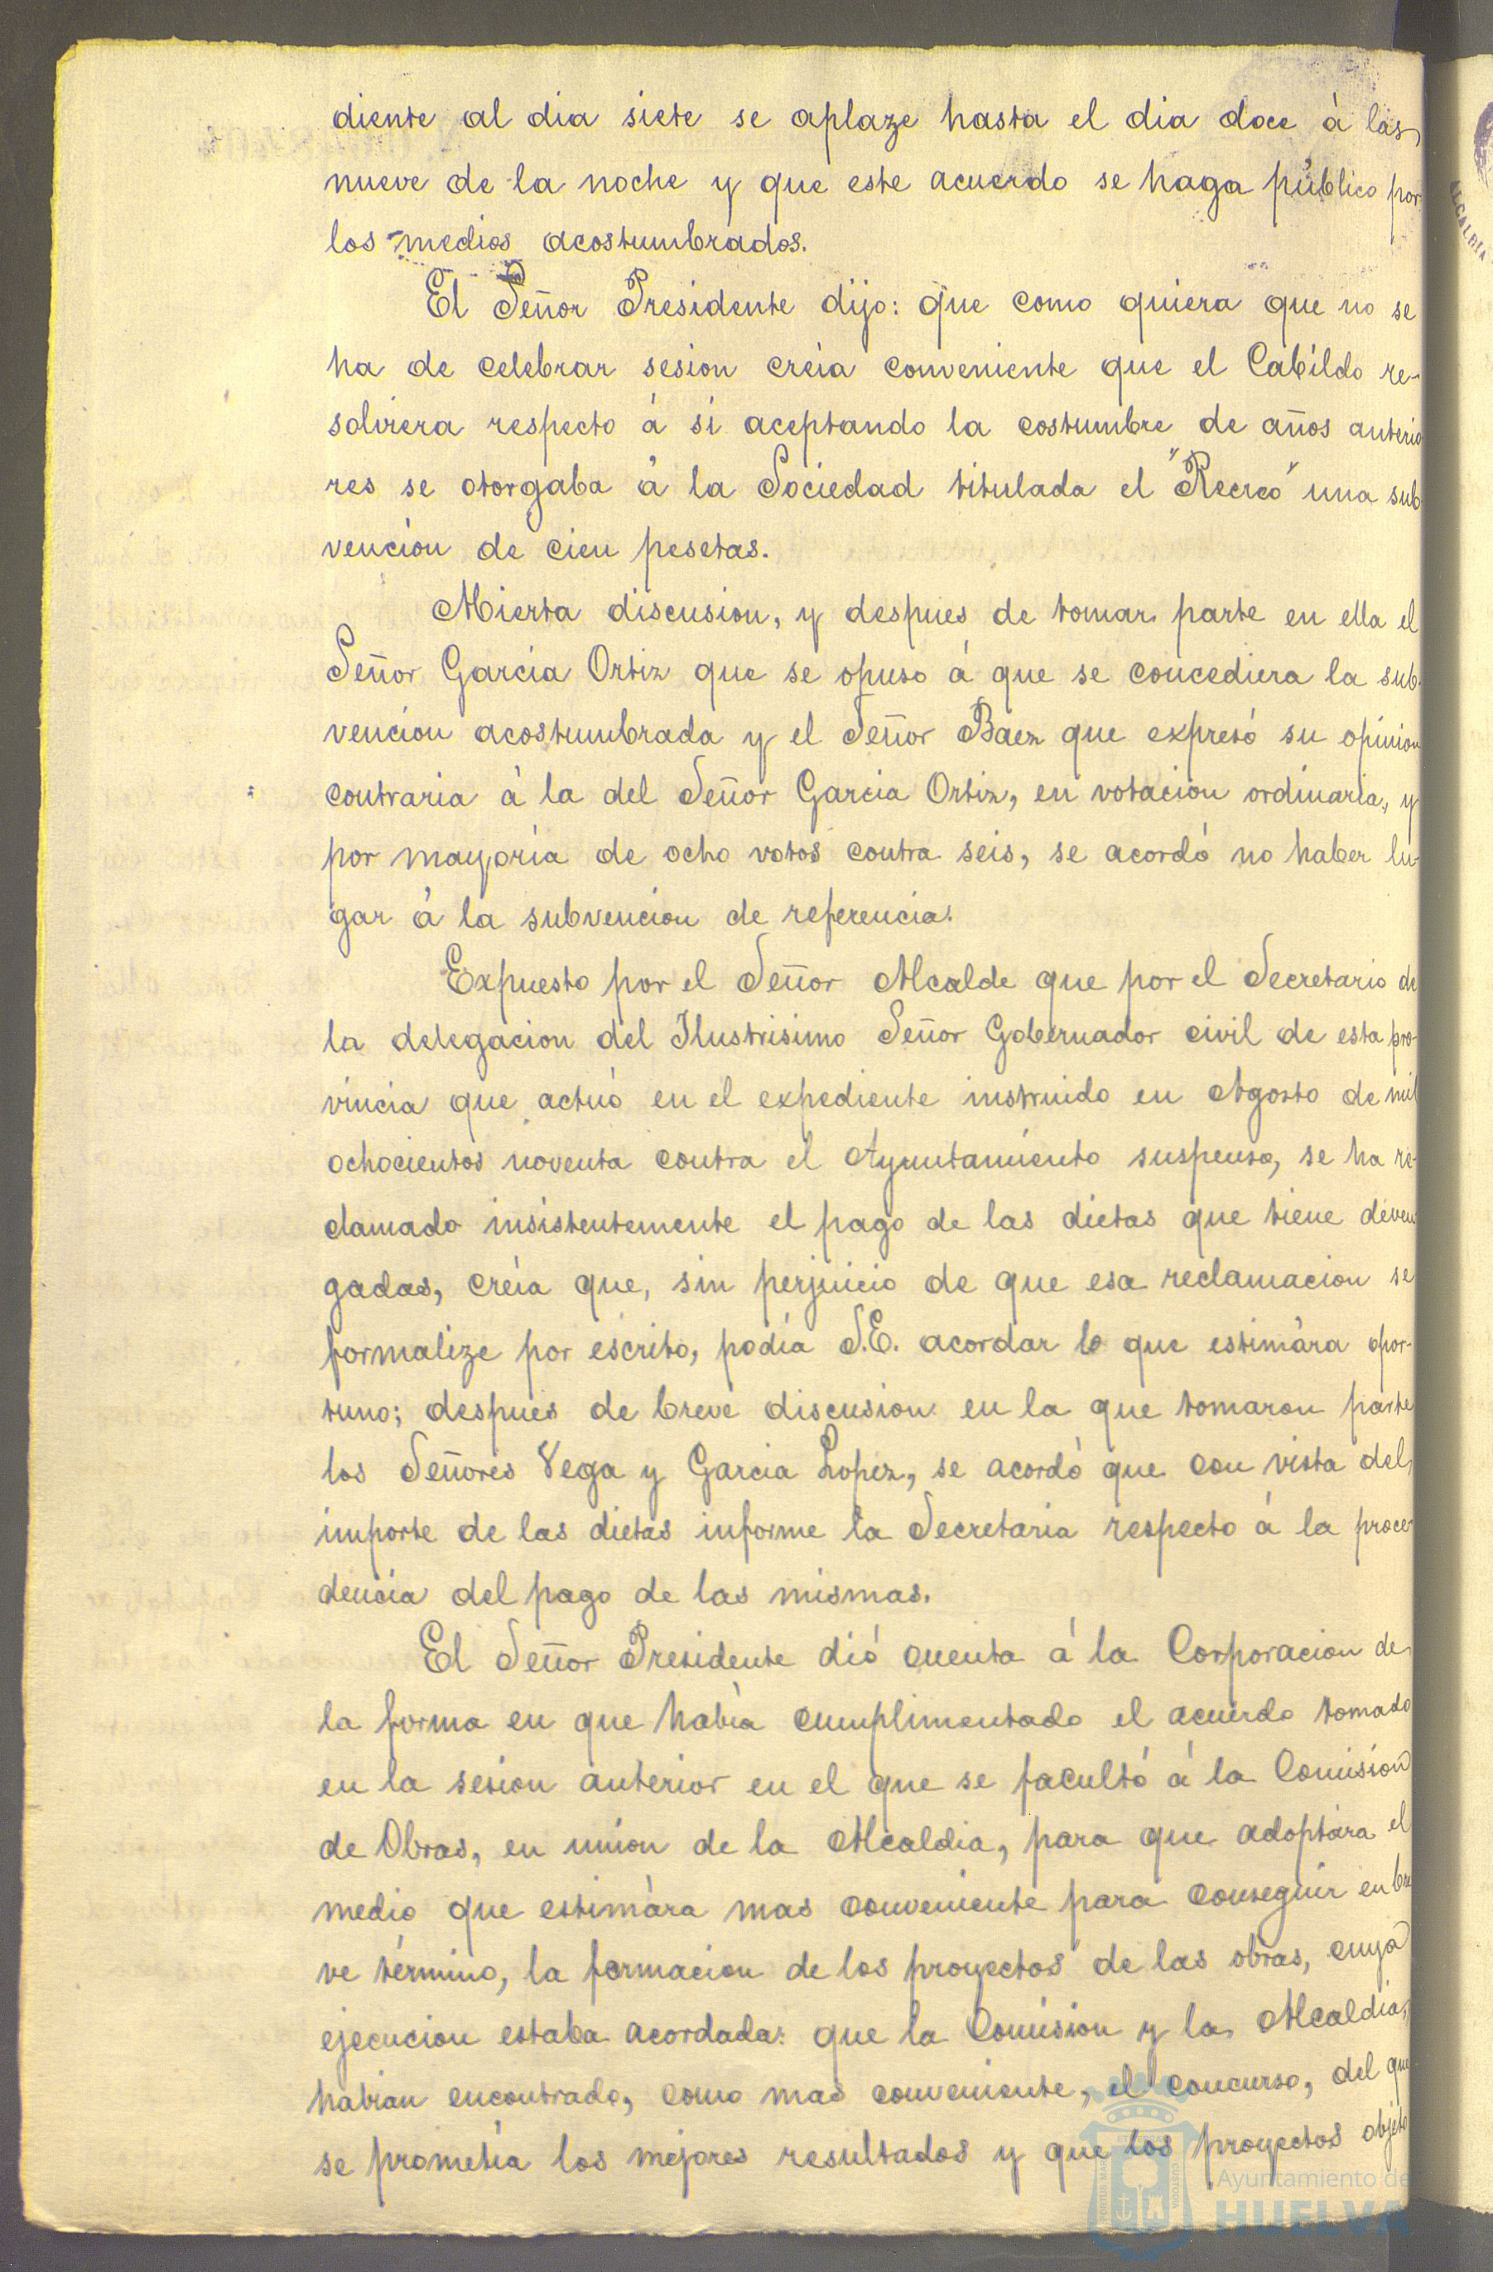 diente al dia siete se aplaze hasta el dia doce á las
nueve de la noche y que este acuerdo se haga público por
los medios acostumbrados.
El Señor Presidente dijo: que como quiera que no se
ha de celebrar sesion creia conveniente que el Cabildo re-
solviera respecto á si aceptando la costumbre de años anterio
res se otorgaba á la Sociedad titulada el "Recreo" una sub
vencion de cien pesetas.
Abierta discusion, y despues de tomar parte en ella el
Señor Garcia Ortiz que se opuso á que se concediera la sub-
vencion acostumbrada y el Señor Baez que expresó su opinion
contraria á la del Señor Garcia Ortiz, en votacion ordinaria, y
por mayoría de ocho votos contra seis, se acordó no haber lu-
gar á la subvencion de referencia.
Expuesto por el Señor Alcalde que por el Secretario de
la delegacion del Ilustrisimo Señor Gobernador civil de esta pro-
vincia que actuó en el expediente instruido en Agosto de mil
ochocientos noventa contra el Ayuntamiento suspenso, se ha re-
clamado insistentemente el pago de las dietas que tiene deven
gadas, creia que, sin perjuicio de que esa reclamacion se
formalize por escrito, podía S.E. acordar lo que estimára opor-
tuno; despues de breve discusion en la que tomaron parte
los Señores Vega y Garcia Lopez, se acordó que con vista del
importe de las dietas informe la Secretaria respecto á la proce-
dencia del pago de las mismas.
El Señor Presidente dió cuenta á la Corporacion de
la forma en que habia cumplimentado el acuerdo tomado
en la sesion anterior en el que se facultó á la Comision
de Obras, en union de la Alcaldia, para que adoptára el
medio que estimára mas conveniente para conseguir en bre
ve término, la formacion de los proyectos de las obras, cuya
ejecucion estaba acordada: que la Comision y la Alcaldia,
habian encontrado, como mas conveniente, el concurso, del que
se prometía los mejores resultados y que los proyectos objeto
Ayuntamiento de
HUELVA